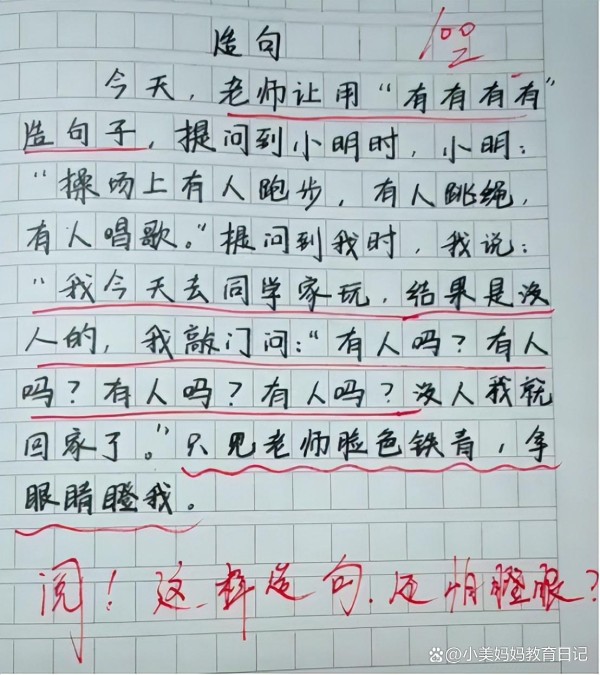 造句
100
今天，老师让用“有有有有”
造句子，提问到小明时，小明：
“操场上有人跑步，有人跳绳，
有人唱歌。”提问到我时，我说：
“我今天去同学家玩，结果是没
人的，我敲门问：“有人吗？有人
吗？有人吗？有人吗？没人我就
回家了。”只见老师脸色铁青，拿
眼睛瞪我。
阅！这样造句，还怕瞪眼？
@小美妈妈教育日记